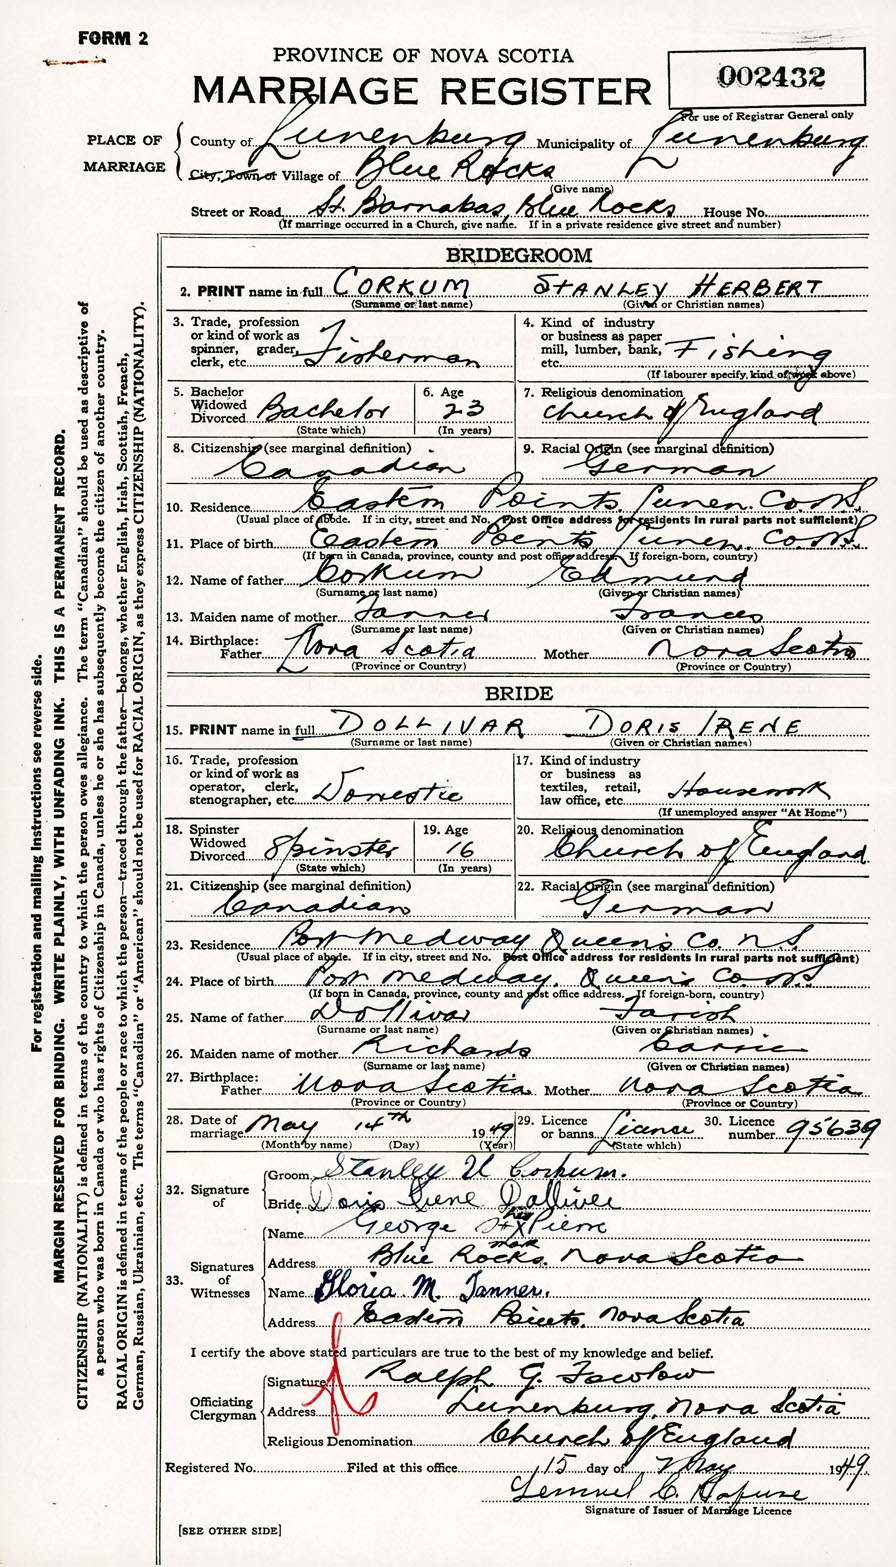 FORM 2
PROVINCE OF NOVA SCOTIA
MARRIAGE REGISTER
002432
For use of Registrar General only
PLACE OF MARRIAGE
County of Lunenburg Municipality of Lunenburg
City, Town or Village of Blue Rocks
(Give name)
Street or Road St. Barnabas, Blue Rocks House No.
(If marriage occurred in a Church, give name. If in a private residence give street and number)
BRIDEGROOM
2. PRINT name in full CORKUM STANLEY HERBERT
(Surname or last name) (Given or Christian names)
3. Trade, profession or kind of work as spinner, grader, clerk, etc. Fisherman
4. Kind of industry or business as paper mill, lumber, bank, etc. Fishing
(If labourer specify, kind of work above)
5. Bachelor Widowed Divorced Bachelor
(State which)
6. Age 23
(In years)
7. Religious denomination Church of England
8. Citizenship (see marginal definition) Canadian
9. Racial Origin (see marginal definition) German
10. Residence Eastern Points, Lunen. Co. N.S.
(Usual place of abode. If in city, street and No. Post Office address for residents in rural parts not sufficient)
11. Place of birth Eastern Points Lunen. Co. N.S.
(If born in Canada, province, county and post office address. If foreign-born, country)
12. Name of father Corkum Edmund
(Surname or last name) (Given or Christian names)
13. Maiden name of mother Tanner Frances
(Surname or last name) (Given or Christian names)
14. Birthplace: Father Nova Scotia Mother Nova Scotia
(Province or Country) (Province or Country)
BRIDE
15. PRINT name in full DOLLIVAR DORIS IRENE
(Surname or last name) (Given or Christian names)
16. Trade, profession or kind of work as operator, clerk, stenographer, etc. Domestic
17. Kind of industry or business as textiles, retail, law office, etc. Housework
(If unemployed answer "At Home")
18. Spinster Widowed Divorced Spinster
(State which)
19. Age 16
(In years)
20. Religious denomination Church of England
21. Citizenship (see marginal definition) Canadian
22. Racial Origin (see marginal definition) German
23. Residence Port Medway Queen's Co. N.S.
(Usual place of abode. If in city, street and No. Post Office address for residents in rural parts not sufficient)
24. Place of birth Port Medway, Queen's Co. N.S.
(If born in Canada, province, county and post office address. If foreign-born, country)
25. Name of father Dollivar
(Surname or last name) (Given or Christian names)
26. Maiden name of mother Richards Carrie
(Surname or last name) (Given or Christian names)
27. Birthplace: Father Nova Scotia Mother Nova Scotia
(Province or Country) (Province or Country)
28. Date of marriage May 14th 1949
(Month by name) (Day) (Year)
29. Licence or banns License
(State which)
30. Licence number 95639
32. Signature of
Groom Stanley H Corkum.
Bride Doris Irene Dolliver
33. Signatures of Witnesses
Name George St. Pierre
his X mark
Address Blue Rocks, Nova Scotia
Name Gloria M. Tanner.
Address Eastern Points, Nova Scotia
I certify the above stated particulars are true to the best of my knowledge and belief.
Officiating Clergyman
Signature Ralph G.
Address Lunenburg, Nova Scotia
Religious Denomination Church of England
Registered No. Filed at this office 15 day of May 1949.
Lemuel C.
Signature of Issuer of Marriage Licence
[SEE OTHER SIDE]
For registration and mailing instructions see reverse side.
MARGIN RESERVED FOR BINDING. WRITE PLAINLY, WITH UNFADING INK. THIS IS A PERMANENT RECORD.
CITIZENSHIP (NATIONALITY) is defined in terms of the country to which the person owes allegiance. The term "Canadian" should be used as descriptive of
a person who was born in Canada or who has rights of Citizenship in Canada, unless he or she has subsequently become the citizen of another country.
RACIAL ORIGIN is defined in terms of the people or race to which the person—traced through the father—belongs, whether English, Irish, Scottish, French,
German, Russian, Ukrainian, etc. The terms "Canadian" or "American" should not be used for RACIAL ORIGIN, as they express CITIZENSHIP (NATIONALITY).